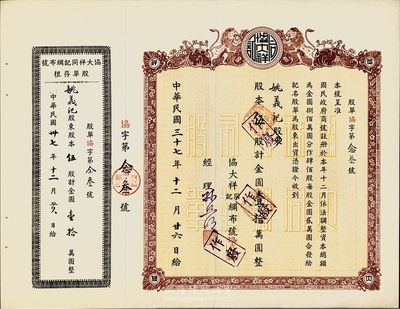 協大祥
股單協字第念叁號
本號呈准
國民政府商號註册於本年十二月依法調整資本總額
為金圓捌佰萬圓分作肆佰股每股金圓貳萬圓合發給
記名股單為股東出資憑證今收到
姚義記股東
股本伍股計金圓壹拾萬圓整
協大祥同記綢布號
經理
中華民國三十七年十二月廿六日給
作廢
作廢
協字第念叁號
協大祥同記綢布號
股單存根
股單協字第念叁號
姚義記股東股本伍股計金圓壹拾萬圓整
中華民國卅七年十二月廿六日給